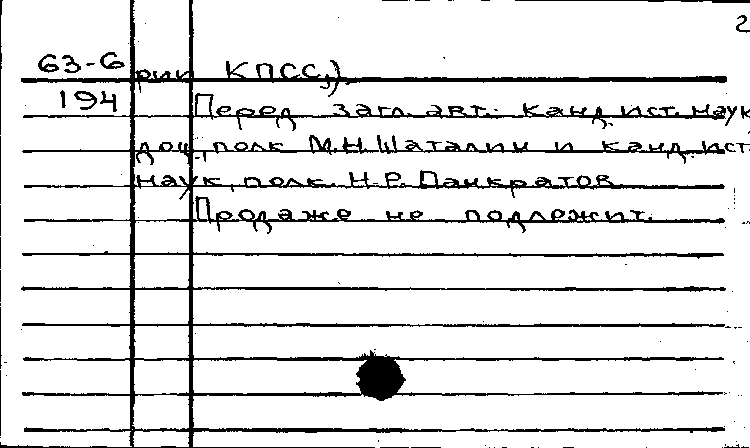 2
63-6 рии КПСС,).
194 Перед загл. авт.: канд. ист. наук
доц., полк. М.Н.Шаталин и канд. ист.
наук, полк. Н.Р. Панкратов.
Продаже не подлежит.